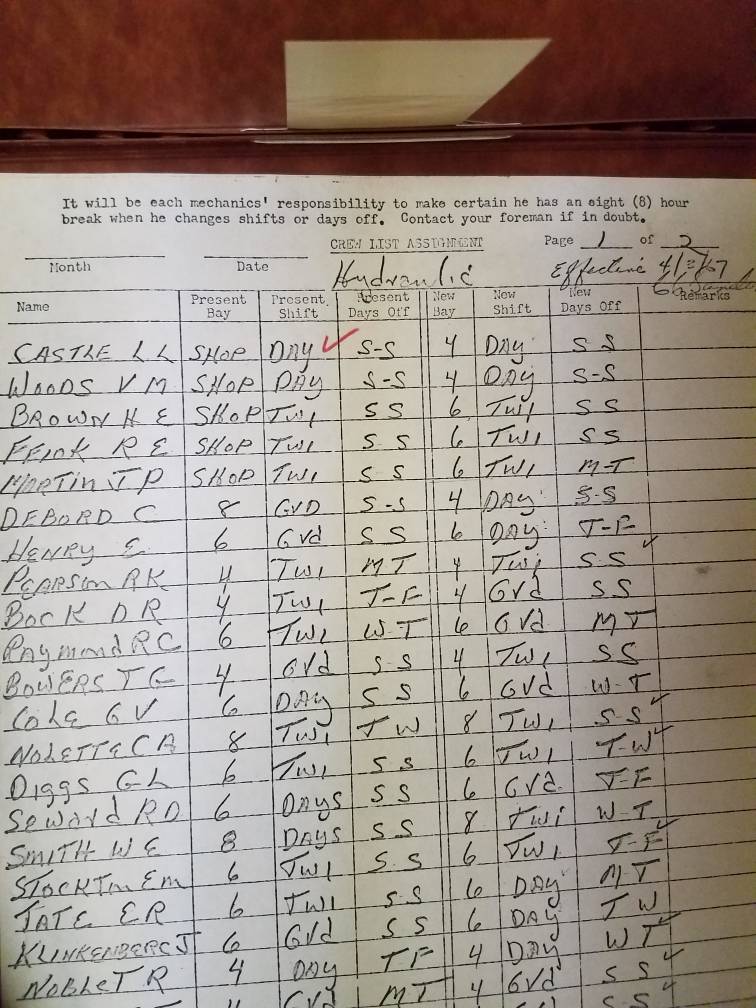 It will be each mechanics' responsibility to make certain he has an eight (8) hour
break when he changes shifts or days off. Contact your foreman if in doubt.
CREW LIST ASSIGNMENT Page 1 of 2
Month Date Hydraulic Effective
Name Present Bay Present Shift Present Days Off New Bay New Shift New Days Off Remarks
CASTLE L L SHOP DAY S-S 4 DAY S S
WOODS V M SHOP DAY S-S 4 DAY S-S
BROWN H E SHOP TWI S S 6 TWI S S
R E SHOP TWI S S 6 TWI S S
MARTIN J P SHOP TWI S S 6 TWI M-T
DEBORD C 8 GVD S-S 4 DAY S-S
HENRY E 6 GVd S S 6 DAY T-F
PEARSON R K 4 TWI M T 4 TWI S-S
BOCK D R 4 TWI T-F 4 GVd S S
RAYMOND R C 6 TWI W-T 6 GVd M T
BOWERS T G 4 GVd S-S 4 TWI S S
COLE G V 6 DAY S S 6 GVd W-T
NOLETTE C A 8 TWI T W 8 TWI S-S
DIGGS G L 6 TWI S S 6 TWI T-W
SEWARD R D 6 DAYS S S 6 GVd T-F
SMITH W E 8 DAYS S S 8 TWI W-T
STOCKTON E M 6 TWI S.S 6 TWI T-F
TATE E R 6 TWI S-S 6 DAY M T
KLINKENBERG J 6 GVd S S 6 DAY T W
NOBLET R 4 DAY T F 4 DAY W T
GVd M T 4 GVd S S
S S